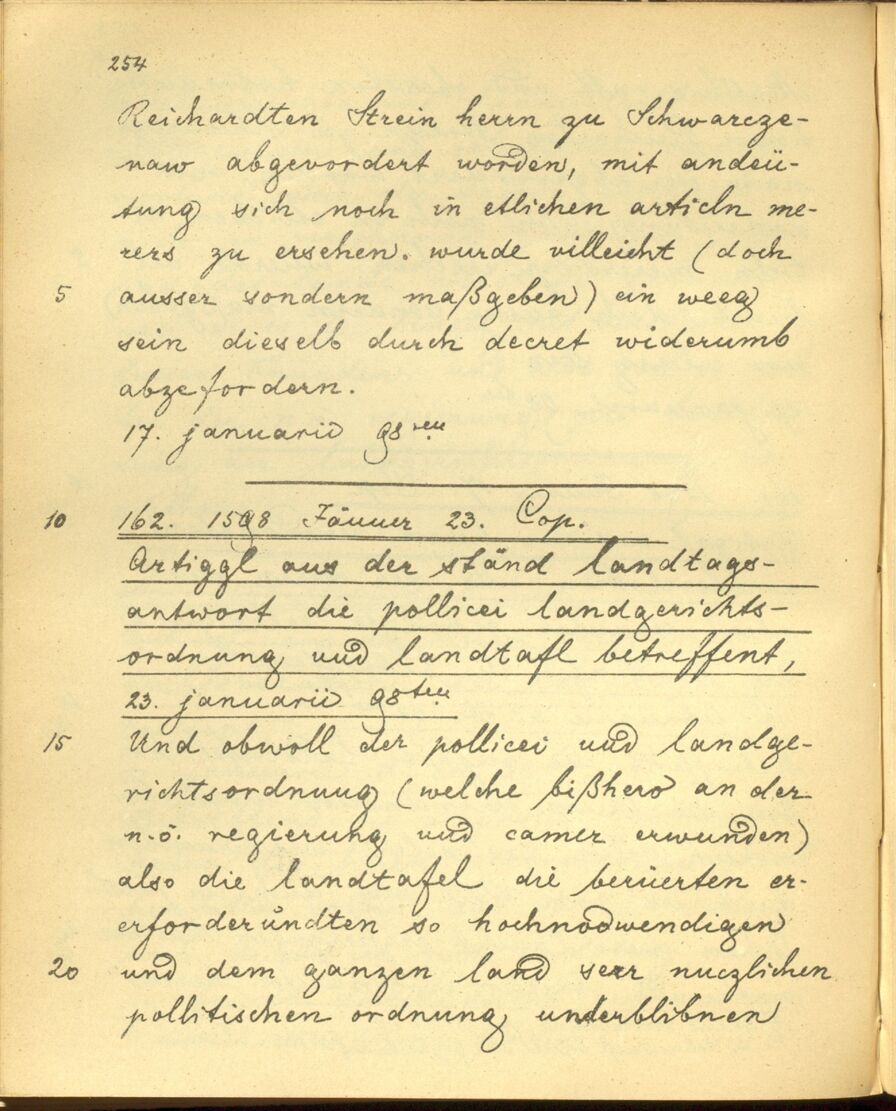 254
Reichardten Strein herrn zu Schwarcze-
naw abgevordert worden, mit andeü-
tung sich noch in etlichen articln me-
rers zu ersehen. wurde villeicht (doch
5 ausser sondern maßgeben) ein weeg
sein dieselb durch decret widerumb
abzefordern.
17. januarii 98ten
10 162. 1598 Jänner 23. Cop.
Artiggl aus der ständ landtags-
antwort die pollicei landgerichts-
ordnung und landtafl betreffent,
23. januarii 98ten
15 Und obwoll der pollicei und landge-
richtsordnung (welche bißhero an der
n.ö. regierung und camer erwunden)
also die landtafel die berüerten er-
erforderündten so hochnodwendigen
20 und dem ganzen land serr nuczlichen
pollitischen ordnung underblibnen